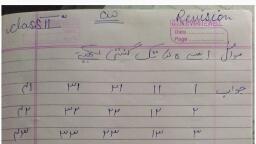 class II CW Revision
Date
Page
سوال ۱ سے ۵۰ تک گنتی لکھیے
جواب ۱ ۱۱ ۲۱ ۳۱ ۴۱
۲ ۱۲ ۲۲ ۳۲ ۴۲
۳ ۱۳ ۲۳ ۳۳ ۴۳